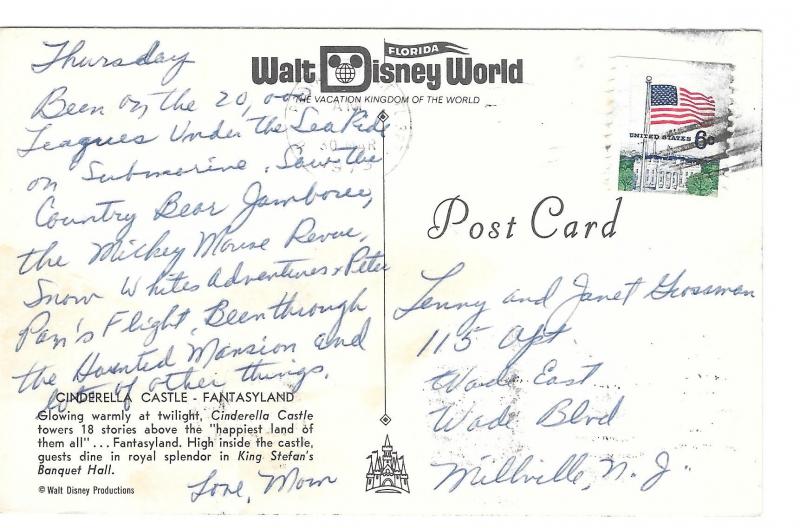 Thursday
Been on the 20,000
Leagues Under the Sea Ride
on Submarine. Saw the
Country Bear Jamboree,
the Mickey Mouse Revue,
Snow Whites Adventures & Peter
Pan's Flight. Been through
the Haunted Mansion and
lots of other things.
CINDERELLA CASTLE - FANTASYLAND
Glowing warmly at twilight, Cinderella Castle
towers 18 stories above the "happiest land of
them all" ... Fantasyland. High inside the castle,
guests dine in royal splendor in King Stefan's
Banquet Hall.
© Walt Disney Productions
Love, Mom
FLORIDA
Walt Disney World
THE VACATION KINGDOM OF THE WORLD
UNITED STATES 6c
Post Card
Lenny and Janet Grossman
115 Apt
Wade East
Wade Blvd
Millville, N. J.